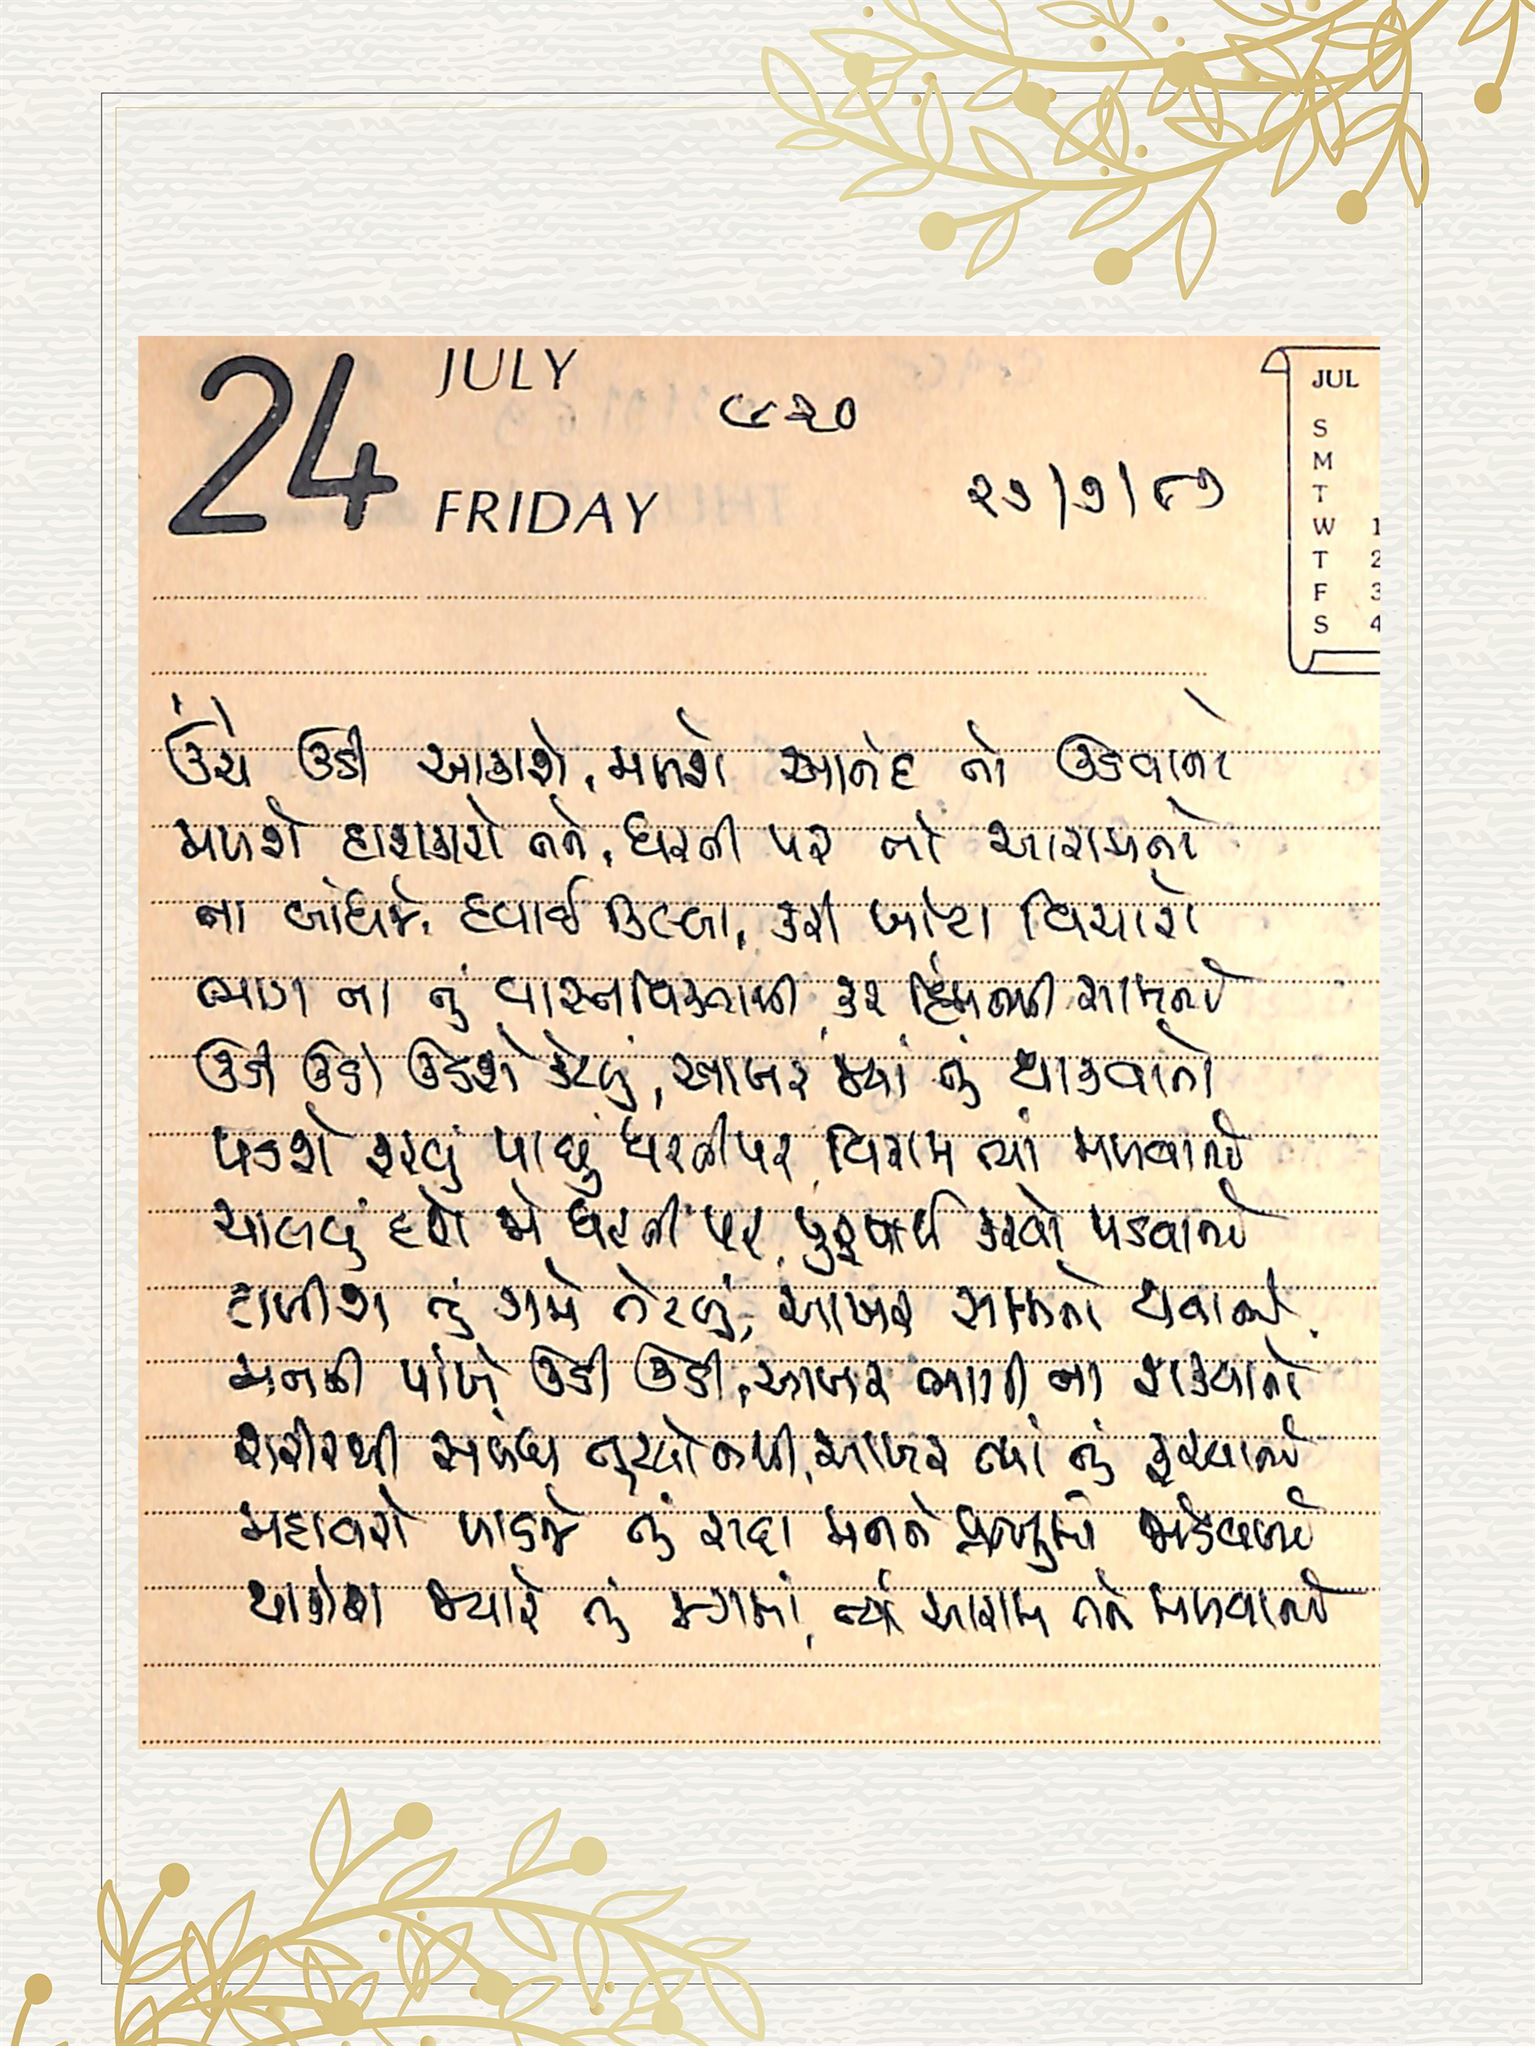 24 JULY
૯૨૦
FRIDAY
૨૭/૭/૮૭
JUL
S
M
T
W 1
T 2
F 3
S 4
ઉંચે ઉડી આકાશે, મળશે આનંદ તો ઉડવાનો
મળશે હાશકારો તને, ધરતી પર તો આરામનો
ના બાંધજે હવાઈ કિલ્લા, કરી ખોટા વિચારો
ભાગ ના તું વાસ્તવિકતાથી, કર હિંમતથી સામનો
ઉડી ઉડી ઉડશે કેટલું, આખર જ્યાં તું થાકવાનો
પડશે ફરવું પાછું ધરતીપર, વિરામ ત્યાં મળવાનો
ચાલવું હશે જો ધરતી પર, પુરુષાર્થ કરવો પડવાનો
ટાળીશ તું ગમે તેટલું, આખર સામનો થવાનો
મનની પાંખે ઉડી ઉડી, આખર ભાગી ના શકવાનો
શરીરથી સંબંધ તુટ્યો નથી, આખર ત્યાં તું ફરવાનો
મહાવરો પાડજે તું સદા મનને પ્રભુમાં જોડવાનો
થાકીશ જ્યારે તું જગમાં, ત્યાં આરામ તને મળવાનો